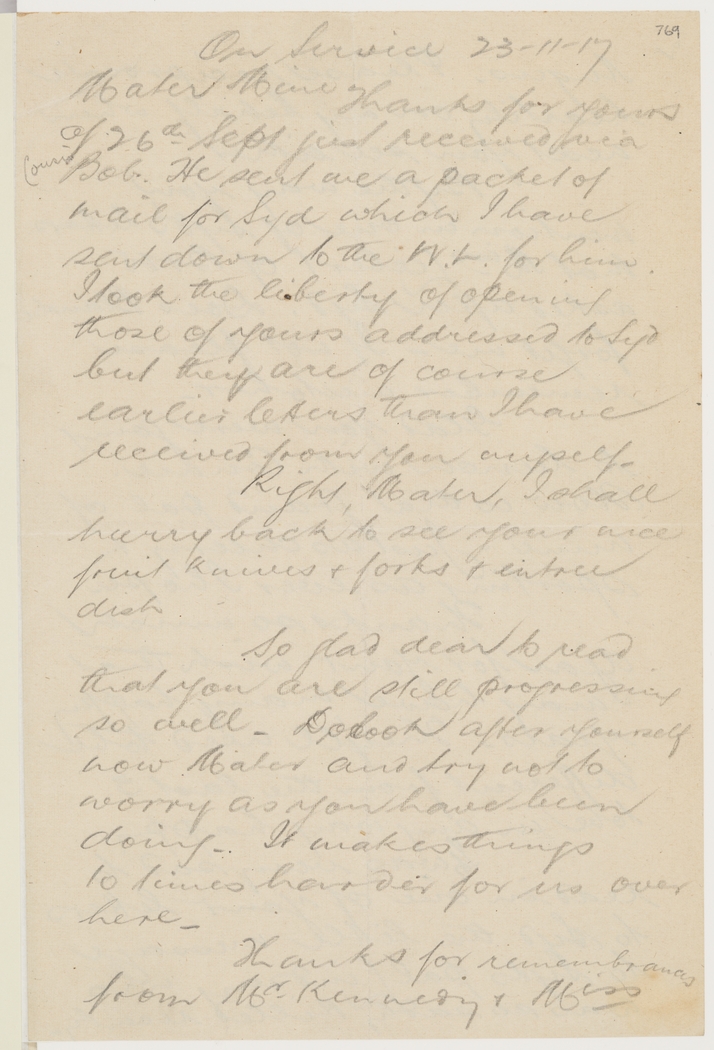 769
On Service 23-11-17
Mater Mine Thanks for yours
of 26th Sept just received via
Bob. He sent me a packet of
mail for Syd which I have
sent down to the W.L. for him.
I took the liberty of opening
those of yours addressed to Syd
but they are of course
earlier letters than I have
received from you myself.
Right, Mater, I shall
hurry back to see your nice
fruit knives & forks & entree
dish
So glad dear to read
that you are still progressing
so well - Do look after yourself
now Mater and try not to
worry as you have been
doing - It makes things
10 times harder for us over
here -
Thanks for remembrances
from Mr Kennedy & Miss